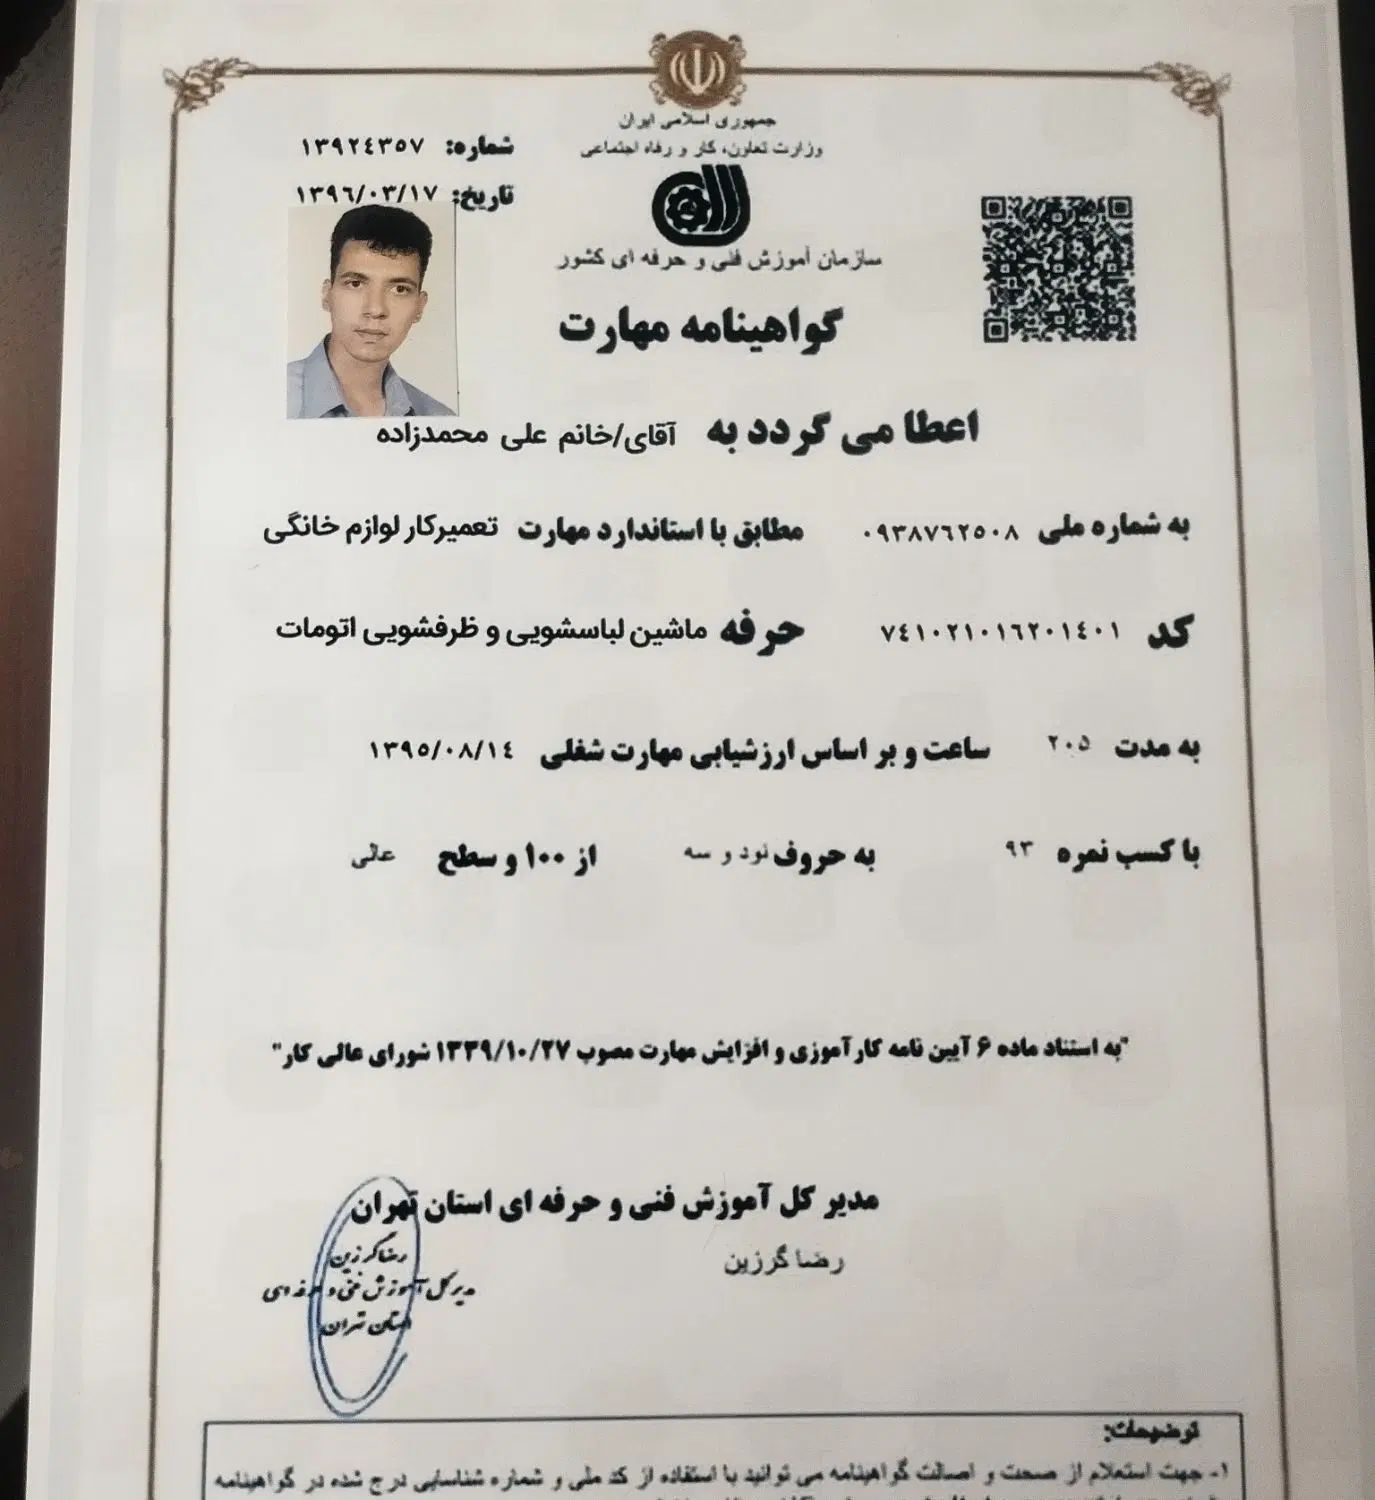 جمهوری اسلامی ایران
وزارت تعاون، کار و رفاه اجتماعی
شماره: ١٣٩٢٤٣٥٧
تاریخ: ١٣٩٦/٠٣/١٧
سازمان آموزش فنی و حرفه ای کشور
گواهینامه مهارت
اعطا می گردد به آقای/خانم علی محمدزاده
به شماره ملی ٠٩٣٨٧٦٢٥٠٨ مطابق با استاندارد مهارت تعمیرکار لوازم خانگی
کد ٧٤١٠٢١٠١٦٢٠١٤٠١ حرفه ماشین لباسشویی و ظرفشویی اتومات
به مدت ٢٠٥ ساعت و بر اساس ارزشیابی مهارت شغلی ١٣٩٥/٠٨/١٤
با کسب نمره ٩٣ به حروف نود و سه از ۱۰۰ و سطح عالی
"به استناد ماده ۶ آیین نامه کارآموزی و افزایش مهارت مصوب ۱۳۳۹/۱۰/۲۷ شورای عالی کار"
مدیر کل آموزش فنی و حرفه ای استان تهران
رضا گرزین
رضا گرزین
مدیر کل آموزش فنی و حرفه ای
استان تهران
توضیحات:
۱- جهت استعلام از صحت و اصالت گواهینامه می توانید با استفاده از کد ملی و شماره شناسایی درج شده در گواهینامه